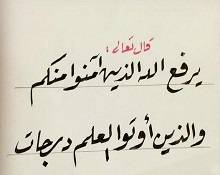 قال تعالى :
يرفع الله الذين آمنوا منكم
والذين أوتوا العلم درجات